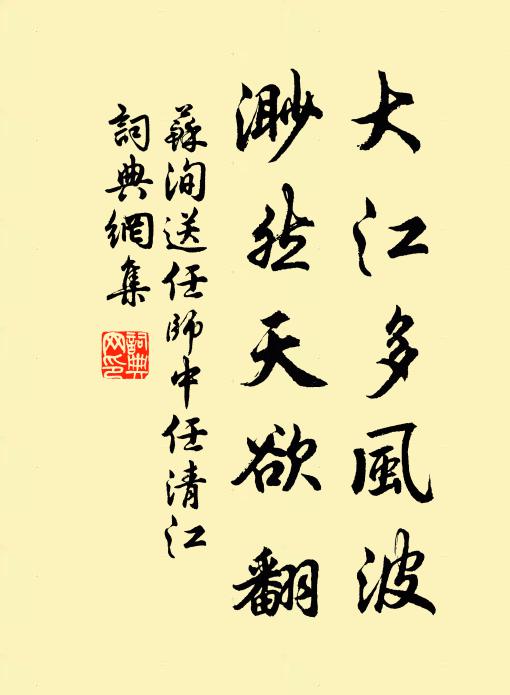 大江多風波
渺然天欲翻
蘇洵送任師中任清江
詞典網集
詞典
网印